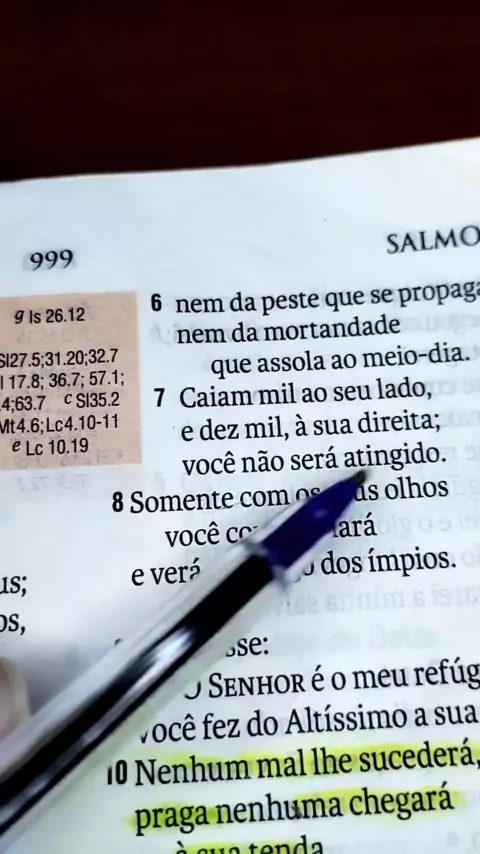 999
SALMO
g Is 26.12
Sl27.5;31.20;32.7
17.8; 36.7; 57.1;
.4;63.7 c Sl35.2
Mt4.6;Lc4.10-11
e Lc 10.19
6 nem da peste que se propaga
nem da mortandade
que assola ao meio-dia.
7 Caiam mil ao seu lado,
e dez mil, à sua direita;
você não será atingido.
8 Somente com os olhos
você
e verá dos ímpios.
us;
os,
sse:
O SENHOR é o meu refúg
você fez do Altíssimo a sua
10 Nenhum mal lhe sucederá,
praga nenhuma chegará
à sua tenda